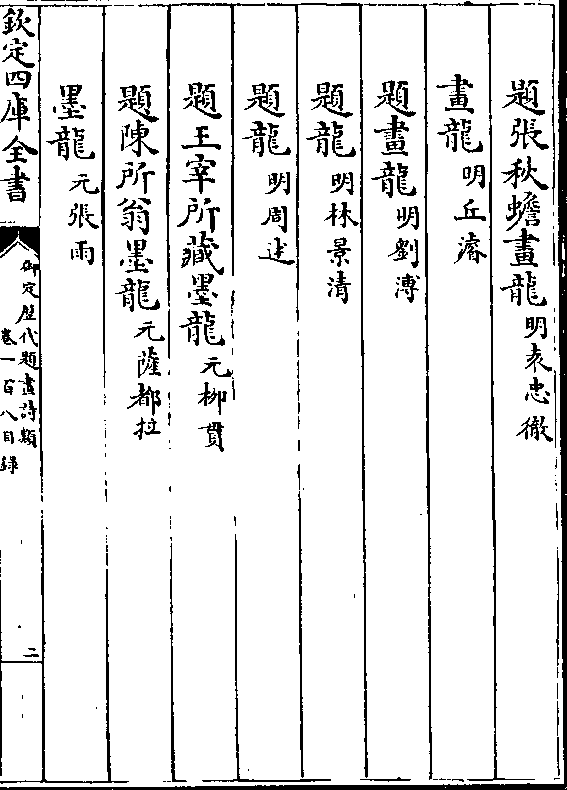 題張秋蟾畫龍 明袁忠徹
畫龍 明丘濬
題畫龍 明劉溥
題龍 明林景清
題龍 明周述
題王宰所藏墨龍 元柳貫
題陳所翁墨龍 元薩都拉
墨龍 元張雨
欽定四庫全書
御定歴代題畫詩類
卷一百八目録
二